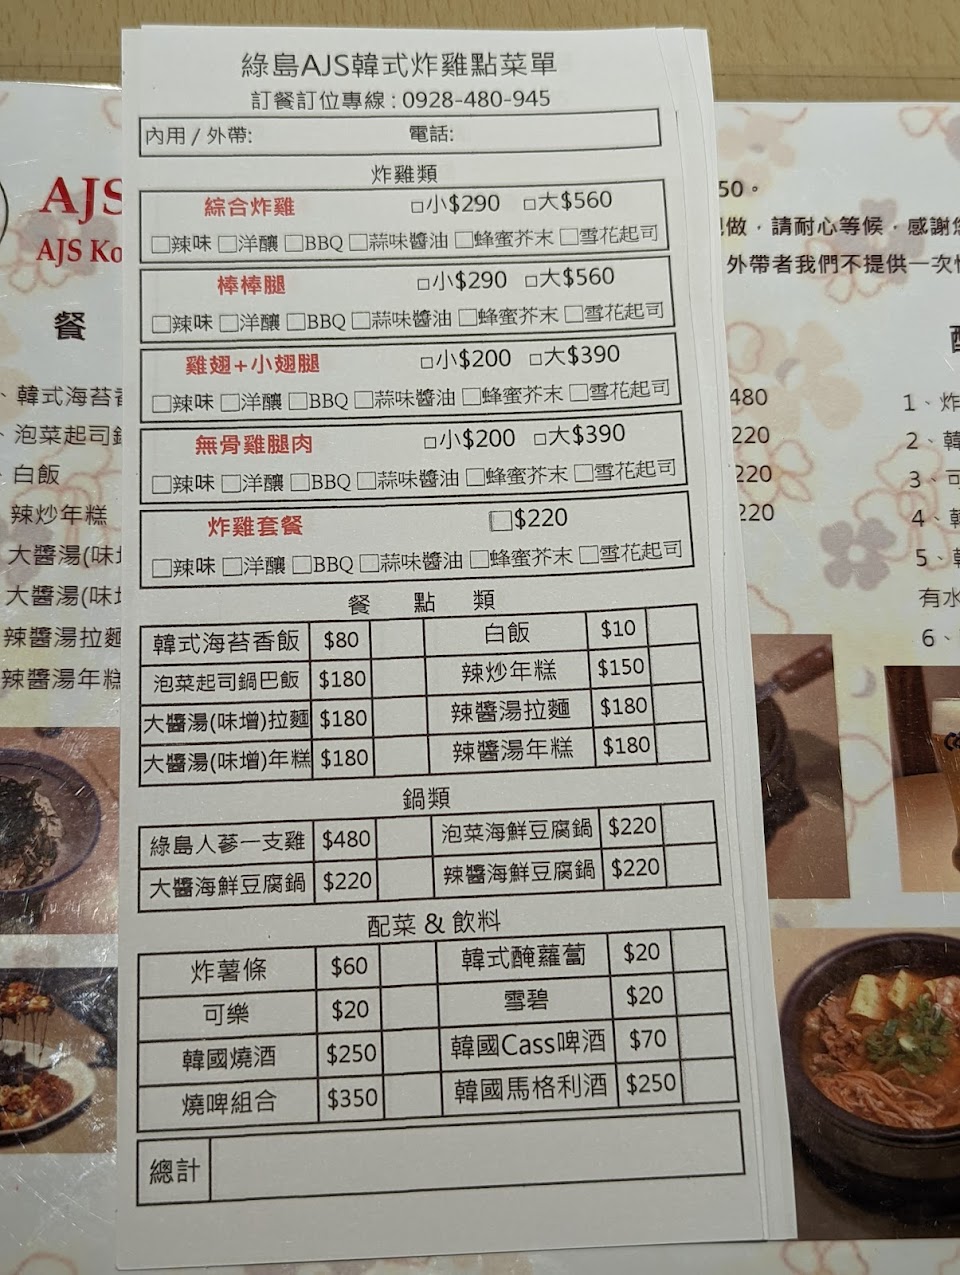 綠島AJS韓式炸雞點菜單
訂餐訂位專線 : 0928-480-945
內用 / 外帶: 電話:
炸雞類
綜合炸雞 □小$290 □大$560
□辣味 □洋釀 □BBQ □蒜味醬油 □蜂蜜芥末 □雪花起司
棒棒腿 □小$290 □大$560
□辣味 □洋釀 □BBQ □蒜味醬油 □蜂蜜芥末 □雪花起司
雞翅+小翅腿 □小$200 □大$390
□辣味 □洋釀 □BBQ □蒜味醬油 □蜂蜜芥末 □雪花起司
無骨雞腿肉 □小$200 □大$390
□辣味 □洋釀 □BBQ □蒜味醬油 □蜂蜜芥末 □雪花起司
炸雞套餐 □$220
□辣味 □洋釀 □BBQ □蒜味醬油 □蜂蜜芥末 □雪花起司
餐 點 類
韓式海苔香飯 $80 白飯 $10
泡菜起司鍋巴飯 $180 辣炒年糕 $150
大醬湯(味增)拉麵 $180 辣醬湯拉麵 $180
大醬湯(味增)年糕 $180 辣醬湯年糕 $180
鍋類
綠島人蔘一支雞 $480 泡菜海鮮豆腐鍋 $220
大醬海鮮豆腐鍋 $220 辣醬海鮮豆腐鍋 $220
配菜 & 飲料
炸薯條 $60 韓式醃蘿蔔 $20
可樂 $20 雪碧 $20
韓國燒酒 $250 韓國Cass啤酒 $70
燒啤組合 $350 韓國馬格利酒 $250
總計
AJS
AJS Ko
餐
、韓式海苔香
、泡菜起司鍋
白飯
辣炒年糕
大醬湯(味增
大醬湯(味增
辣醬湯拉麵
辣醬湯年糕
50。
做，請耐心等候，感謝
外帶者我們不提供一次
480
220
220
220
1、炸
2、韓
3、可
4、韓
5、韓
有水
6、